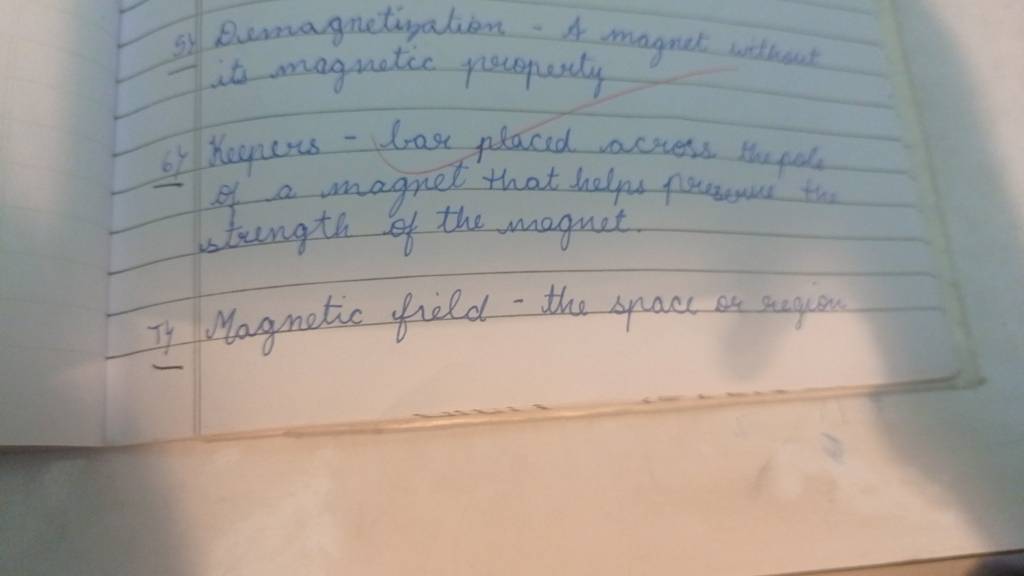 5) Demagnetization - A magnet without
its magnetic property
6) Keepers - bar placed across the pole
of a magnet that helps preserve the
strength of the magnet.
7) Magnetic field - the space or region